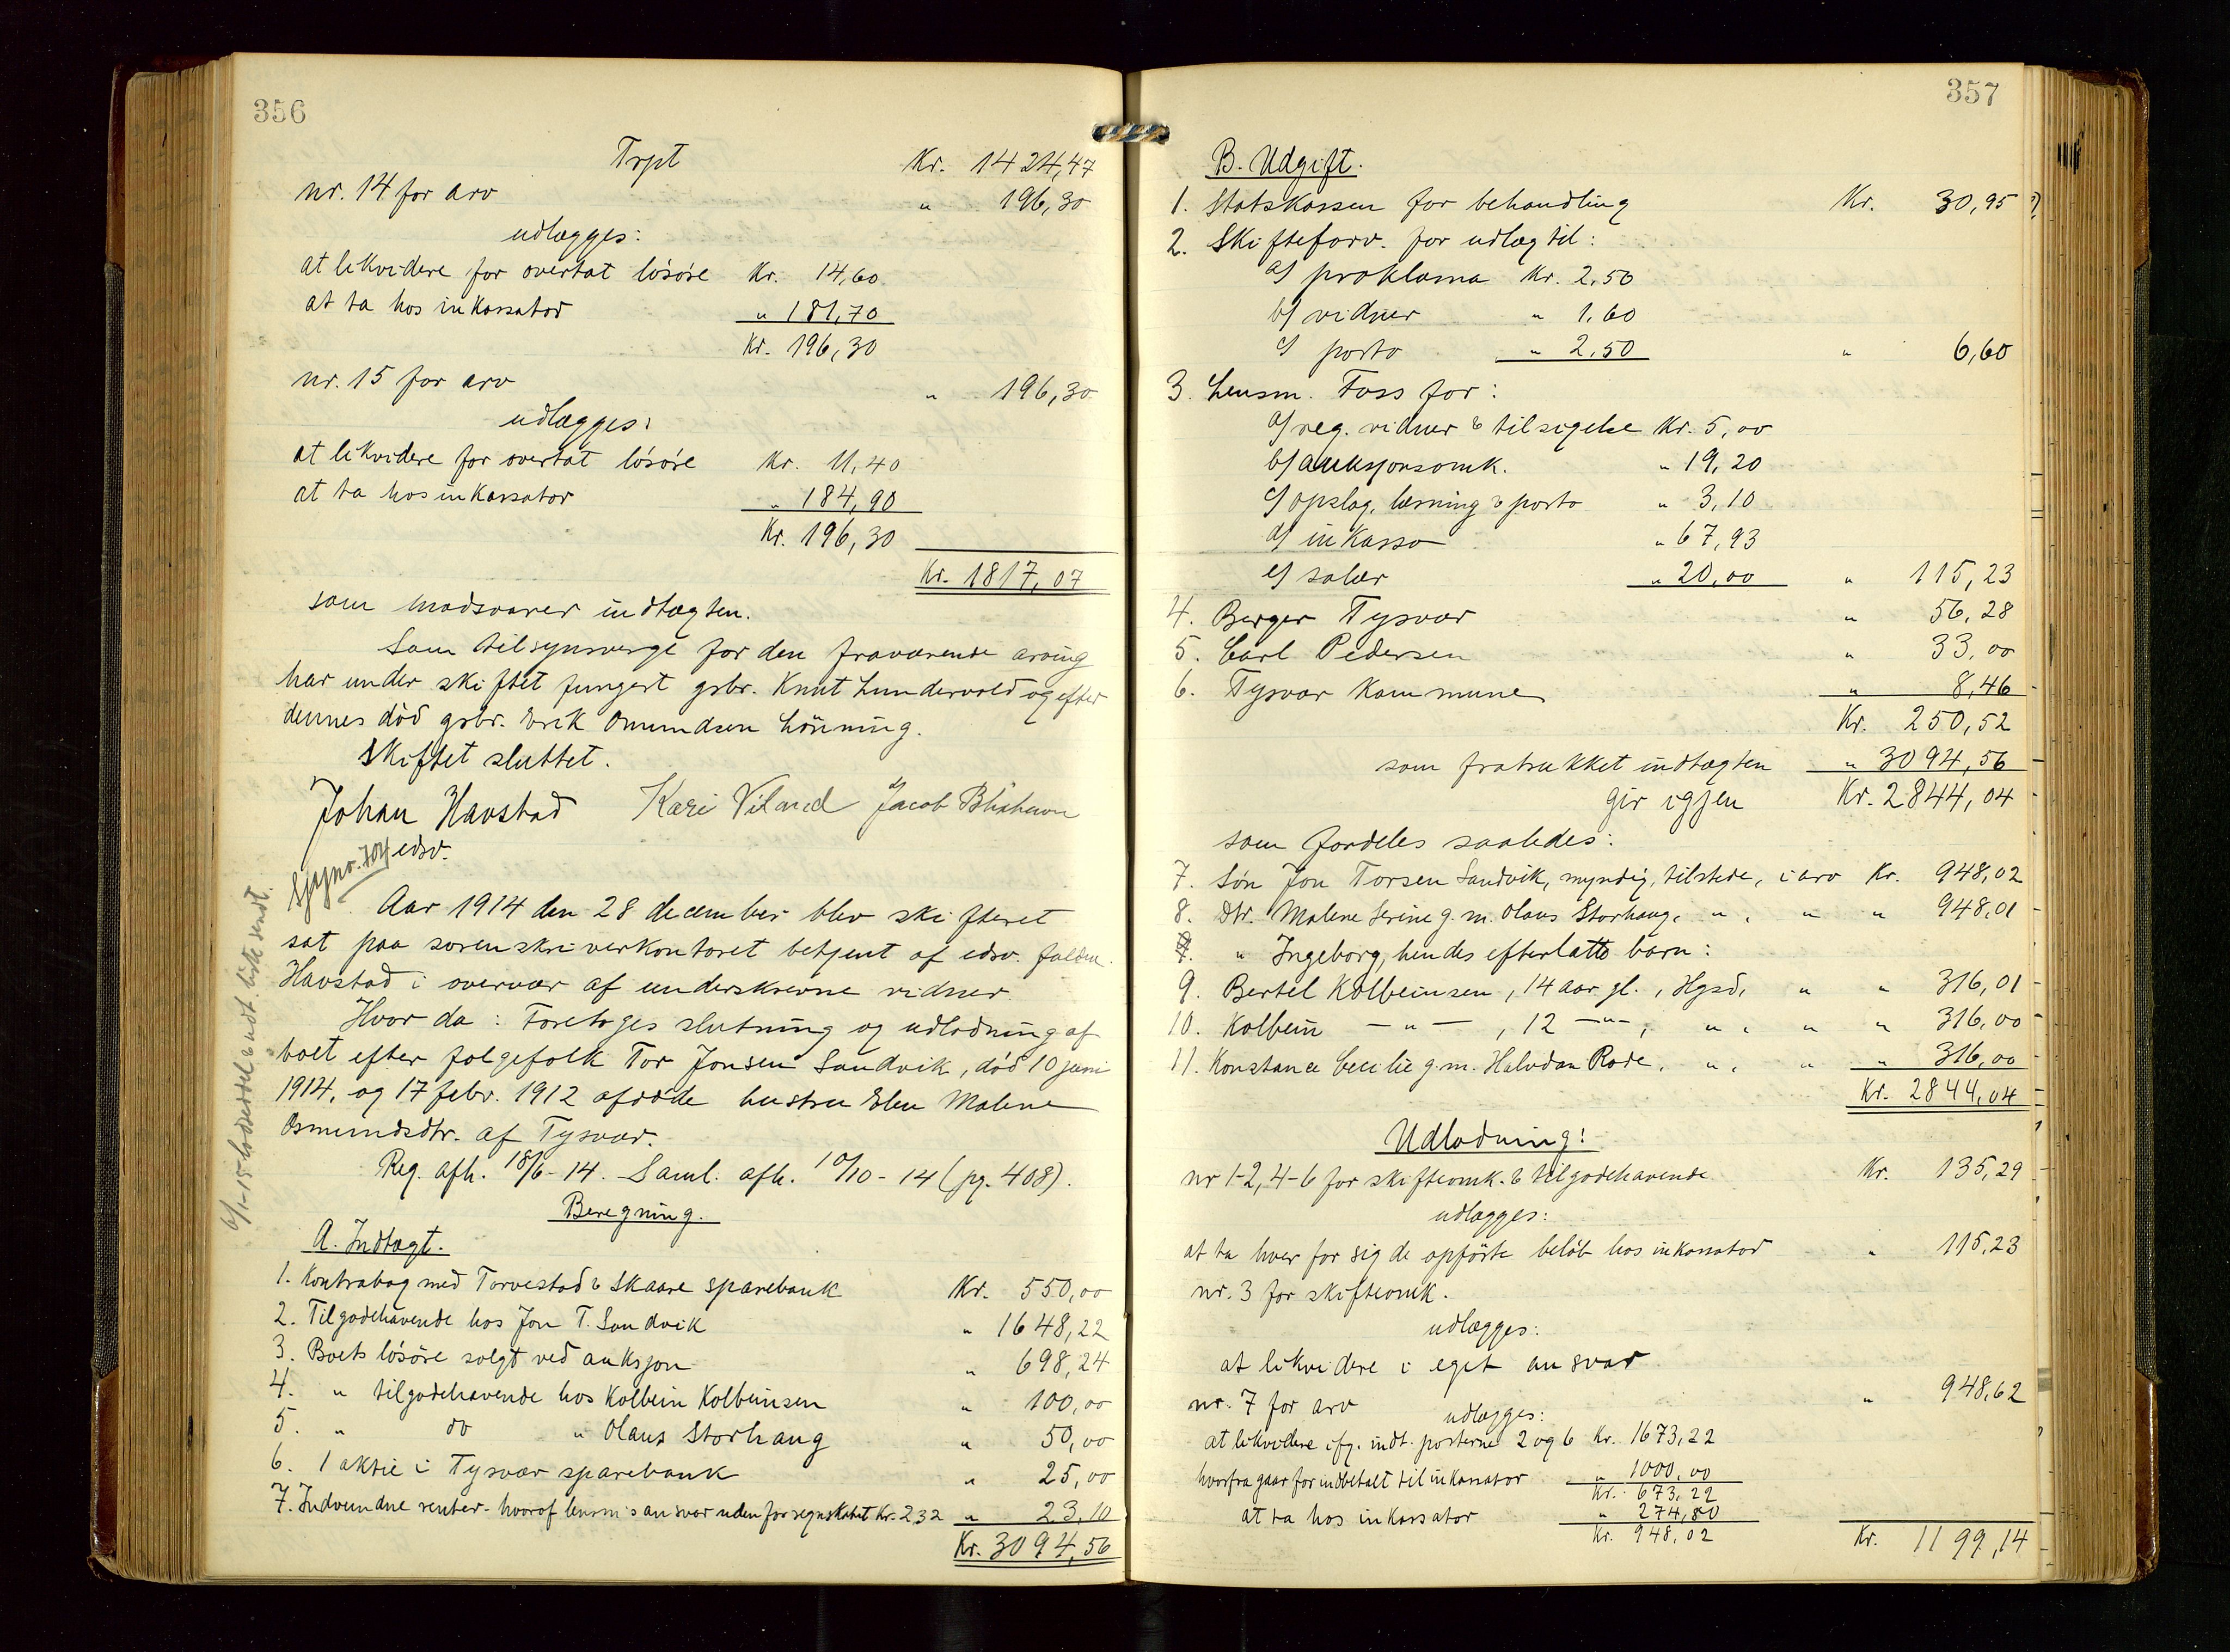 356
Trpt Kr. 1424,47
nr. 14 for arv " 196,30
udlægges:
at likvidere for overtat løsøre Kr. 14,60
at ta hos inkassator " 181,70
Kr. 196,30
nr. 15 for arv " 196,30
udlægges:
at likvidere for overtat løsøre Kr. 11,40
at ta hos inkassator " 184,90
Kr. 196,30
Kr. 1817,07
som modsvarer indtægten.
Som tilsynsverge for den fraværende arving
har under skiftet fungert gsbr. Knut Lundervold og efter
dennes død gsbr. Erik Omundsen Lönning.
Skiftet sluttet.
Johan Havstad Kari Viland Jacob
edsv.
Aar 1914 den 28 december blev skifteret
sat paa sorenskriverkontoret betjent af edsv. fuldm.
Havstad i overvær af underskrevne vidner.
Hvor da: Foretoges slutning og udlodning af
boet efter følgefolk Tor Jonsen Sandvik, död 10 juni
1914, og 17 febr. 1912 afdøde hustru Elen Malene
Osmundsdtr. af Tysvær.
Reg. afh. 18/6-14. Saml. afh. 10/10-14 (pg. 408).
Beregning.
A. Indtægt.
1. Kontrabog med Torvestad & Skaare sparebank Kr. 550,00
2. Tilgodehavende hos Jon T. Sandvik " 1648,22
3. Boets løsøre solgt ved auksjon " 698,24
4. " tilgodehavende hos Kolbein Kolbeinsen " 100,00
5. " do " Olaus Storhaug " 50,00
6. 1 aktie i Tysvær sparebank " 25,00
7. Indvundne renter - hvoraf lensm's ansvar uden for regnskabet Kr. 2,32 " 23,10
Kr. 3094,56
357
B. Udgift.
1. Statskassen for behandling Kr. 30,95
2. Skifteforv. for udlæg til:
a/ proklama Kr. 2,50
b/ vidner " 1,60
c/ porto " 2,50 " 6,60
3. Lensm. Foss for:
a/ reg. vidner & tilsigelse Kr. 5,00
b/ auksjonsomk. " 19,20
c/ opslag, læsning & porto " 3,10
d/ inkasso " 67,93
e/ salær " 20,00 " 115,23
4. Berger Tysvær " 56,28
5. Carl Pedersen " 33,00
6. Tysvær Kommune " 8,46
Kr. 250,52
som fratrukket indtægten " 3094,56
gir igjen Kr. 2844,04
som fordeles saaledes:
7. Søn Jon Torsen Sandvik, myndig, tilstede, i arv Kr. 948,02
8. Dtr. Malene Serine g.m. Olaus Storhaug, " , " " 948,01
" Ingeborg, hendes efterlatte barn:
9. Bertel Kolbeinsen, 14 aar gl., Hgsd, " " 316,01
10. Kolbein -"-, 12 -"-, " , " " 316,00
11. Konstance Cecilie g.m. Halvdan Rode, " , " " 316,00
Kr. 2844,04
Udlodning:
nr 1-2, 4-6 for skifteomk. & tilgodehavende Kr. 135,29
udlægges:
at ta hver for sig de opførte beløb hos inkassator " 115,23
nr. 3 for skifteomk.
udlægges:
at likvidere i eget ansvar
nr. 7 for arv " 948,62
udlægges:
at likvidere ifg. indt. posterne 2 og 6 Kr. 1673,22
hvorfra gaar for indbetalt til inkassator " 1000,00
Kr. 673,22
at ta hos inkassator " 274,80
Kr. 948,02 Kr. 1199,14